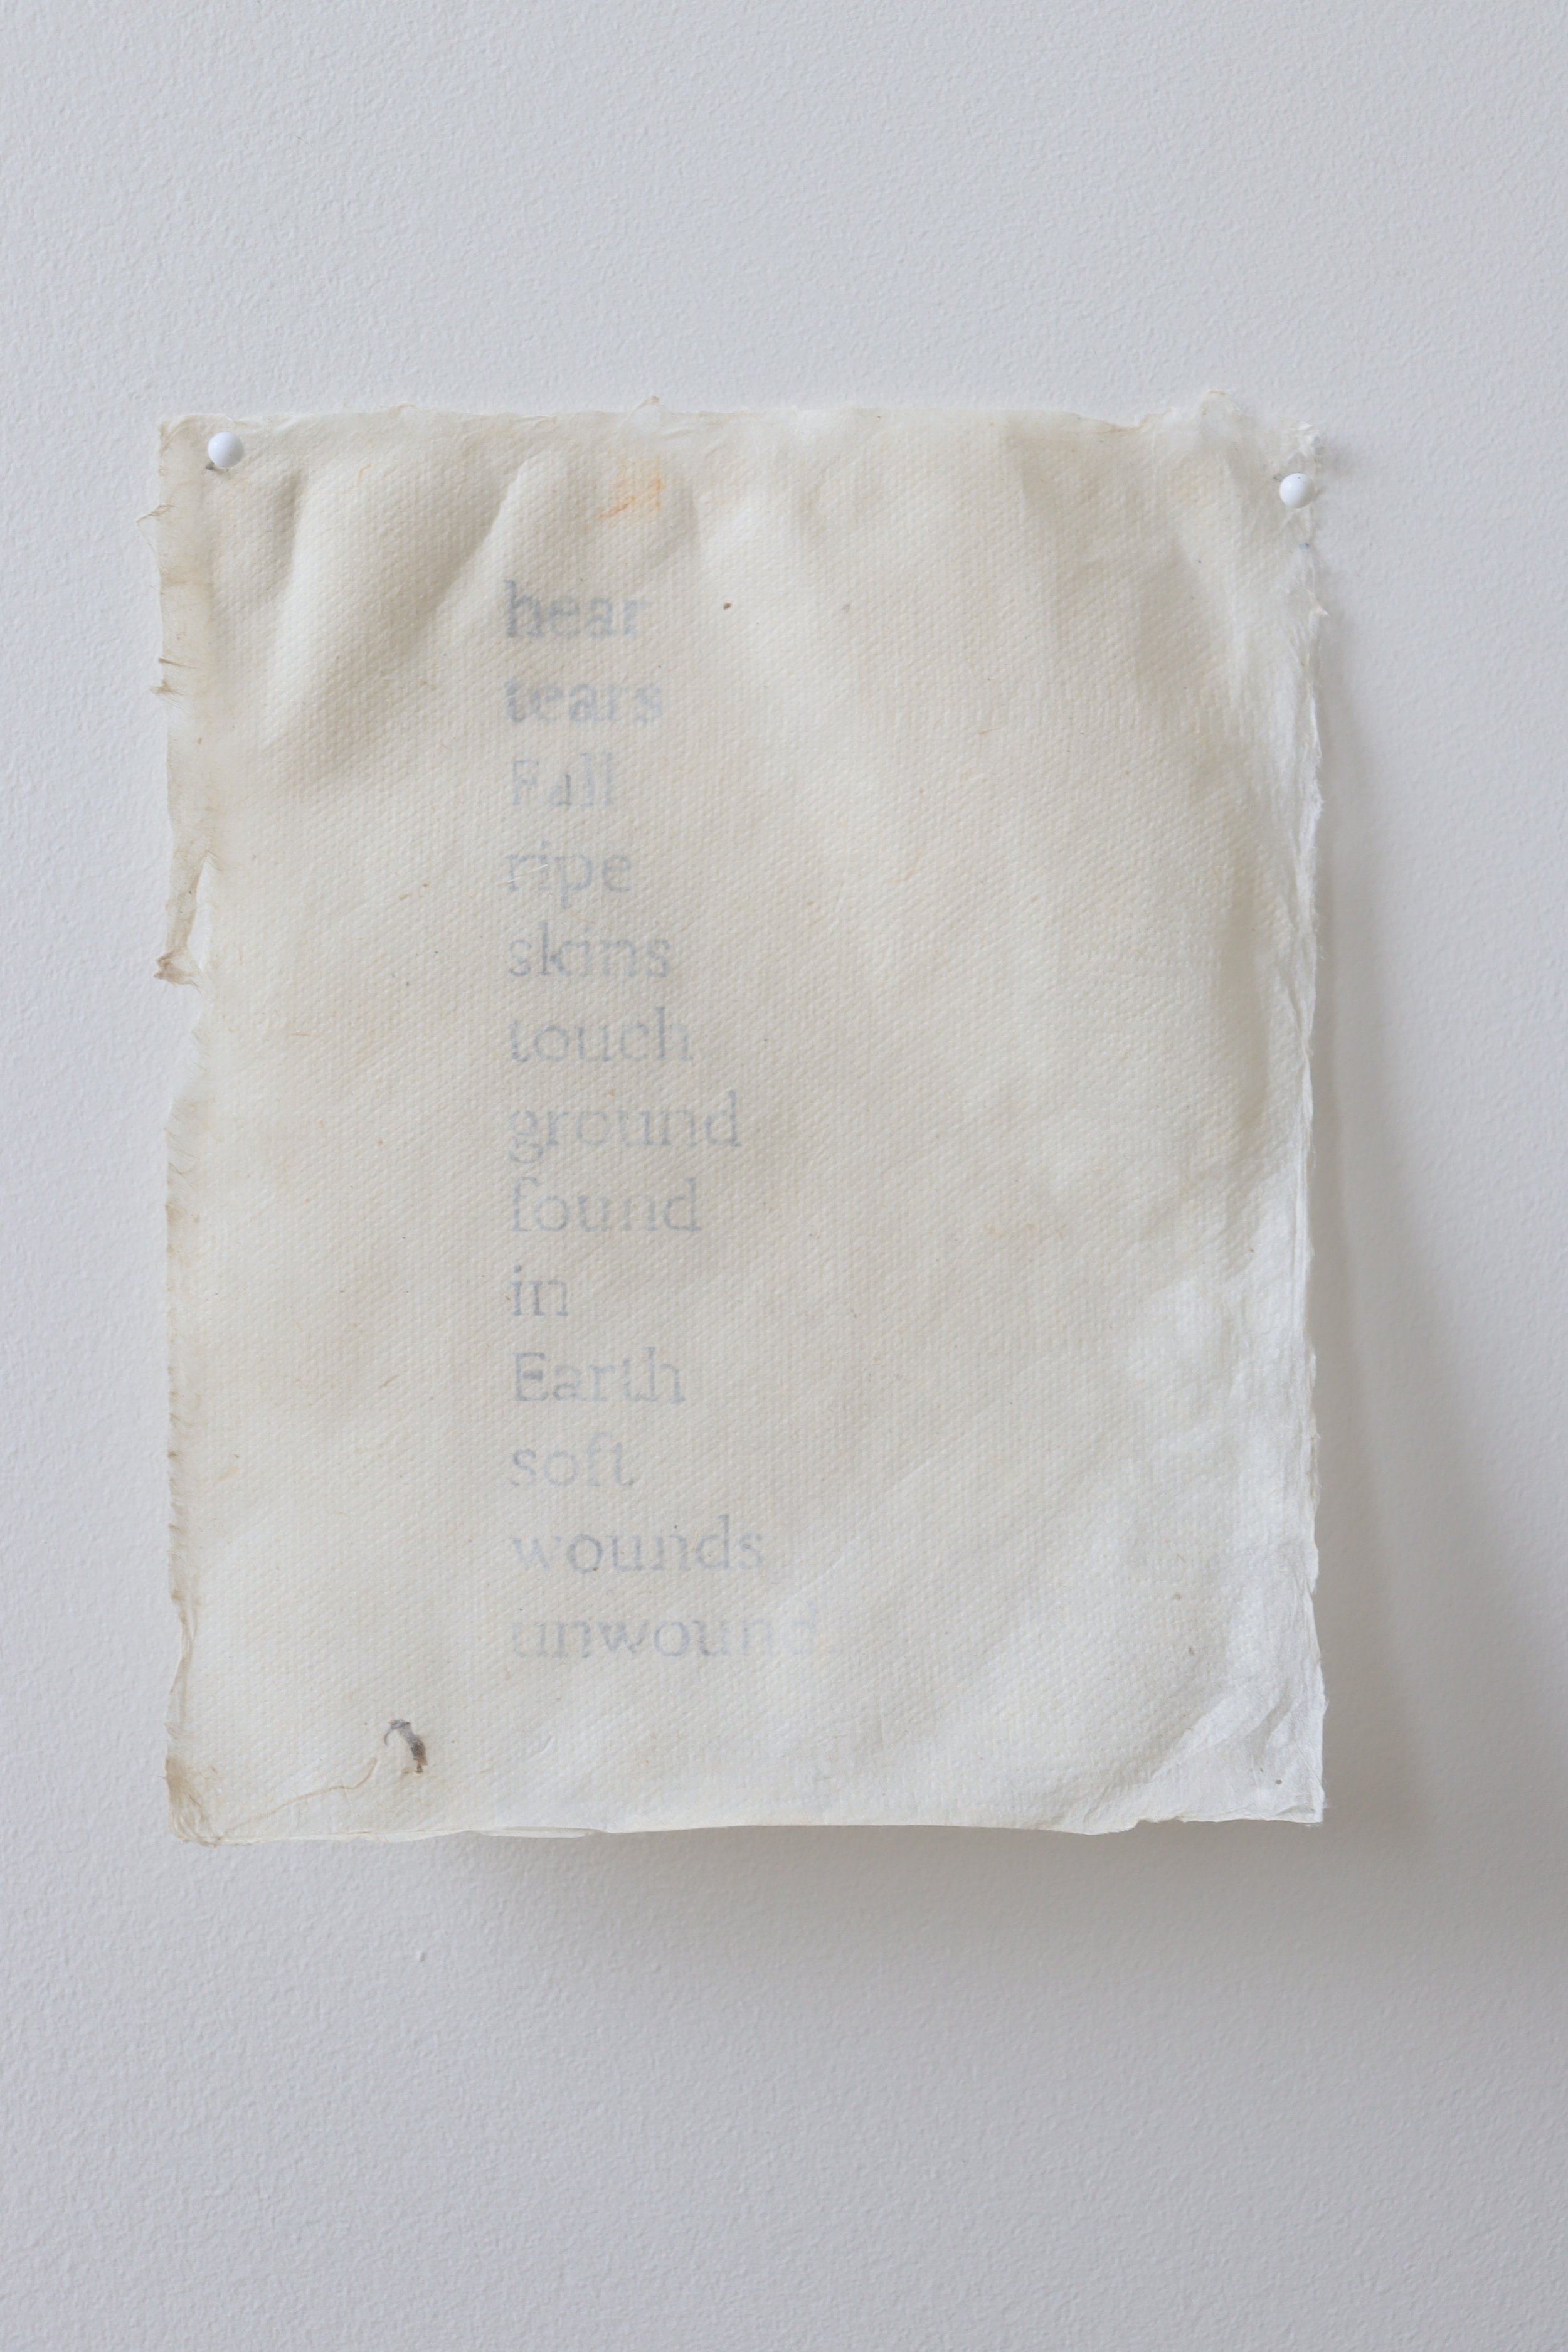 hear
tears
Fall
ripe
skins
touch
ground
found
in
Earth
soft
wounds
unwound